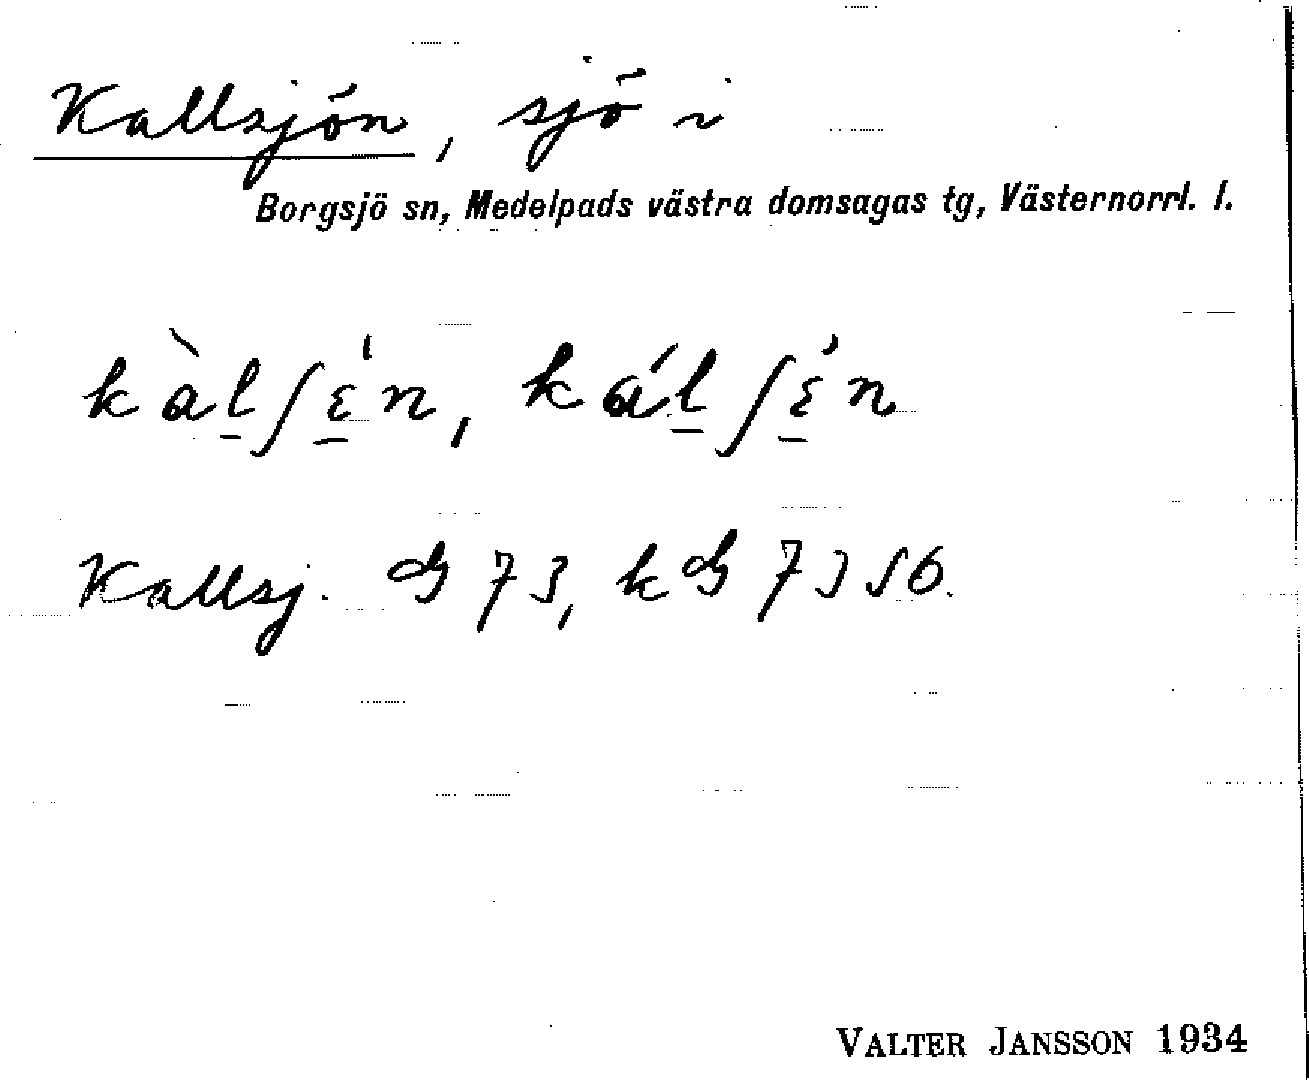 Kallsjön, sjö i
Borgsjö sn, Medelpads västra domsagas tg, Västernorrl. l.
kàl̲ʃɛ̲́n, kál̲ʃɛ̲́n
Kallsj. 73, k 7356.
VALTER JANSSON 1934